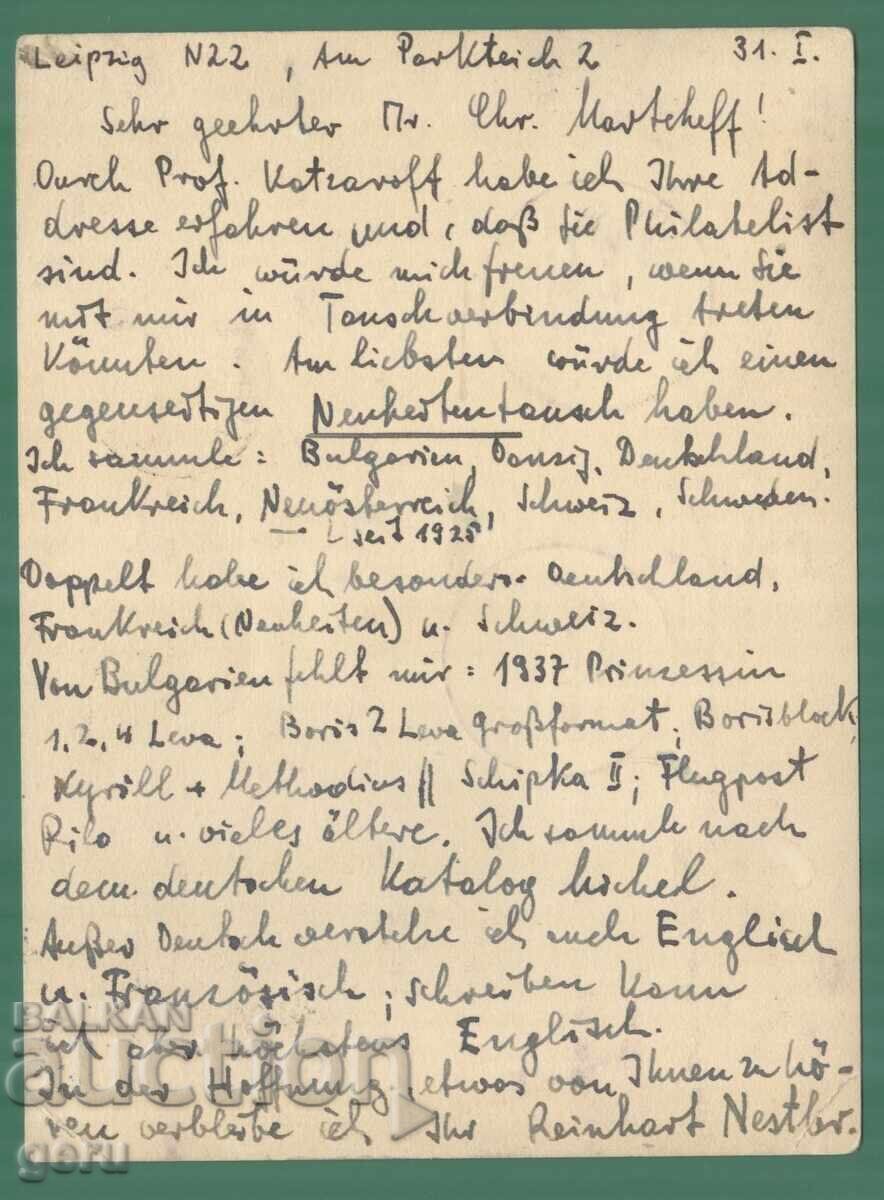 Leipzig N22, Am Parkteich 2 31. I.
Sehr geehrter Mr. Chr. Martscheff!
Durch Prof. Katzaroff habe ich Ihre Ad-
dresse erfahren und, daß Sie Philatelist
sind. Ich würde mich freuen, wenn Sie
mit mir in Tauschverbindung treten
könnten. Am liebsten würde ich einen
gegenseitigen Neuheitentausch haben.
Ich sammle: Bulgarien, Danzig, Deutschland,
Frankreich, Neuösterreich, Schweiz, Schweden.
seit 1925
Doppelt habe ich besonders Deutschland,
Frankreich (Neuheiten) u. Schweiz.
Von Bulgarien fehlt mir: 1937 Prinzessin
1, 2, 4 Leva; Boris 2 Leva Großformat; Borisblock,
Kyrill + Methodius || Schipka II; Flugpost
Rila u. vieles ältere. Ich sammle nach
dem deutschen Katalog Michel.
Außer Deutsch verstehe ich auch Englisch
u. Französisch; schreiben kann
ich aber höchstens Englisch.
In der Hoffnung, etwas von Ihnen zu hö-
ren verbleibe ich Ihr Reinhart Nestler.
BALKAN
auction
geru